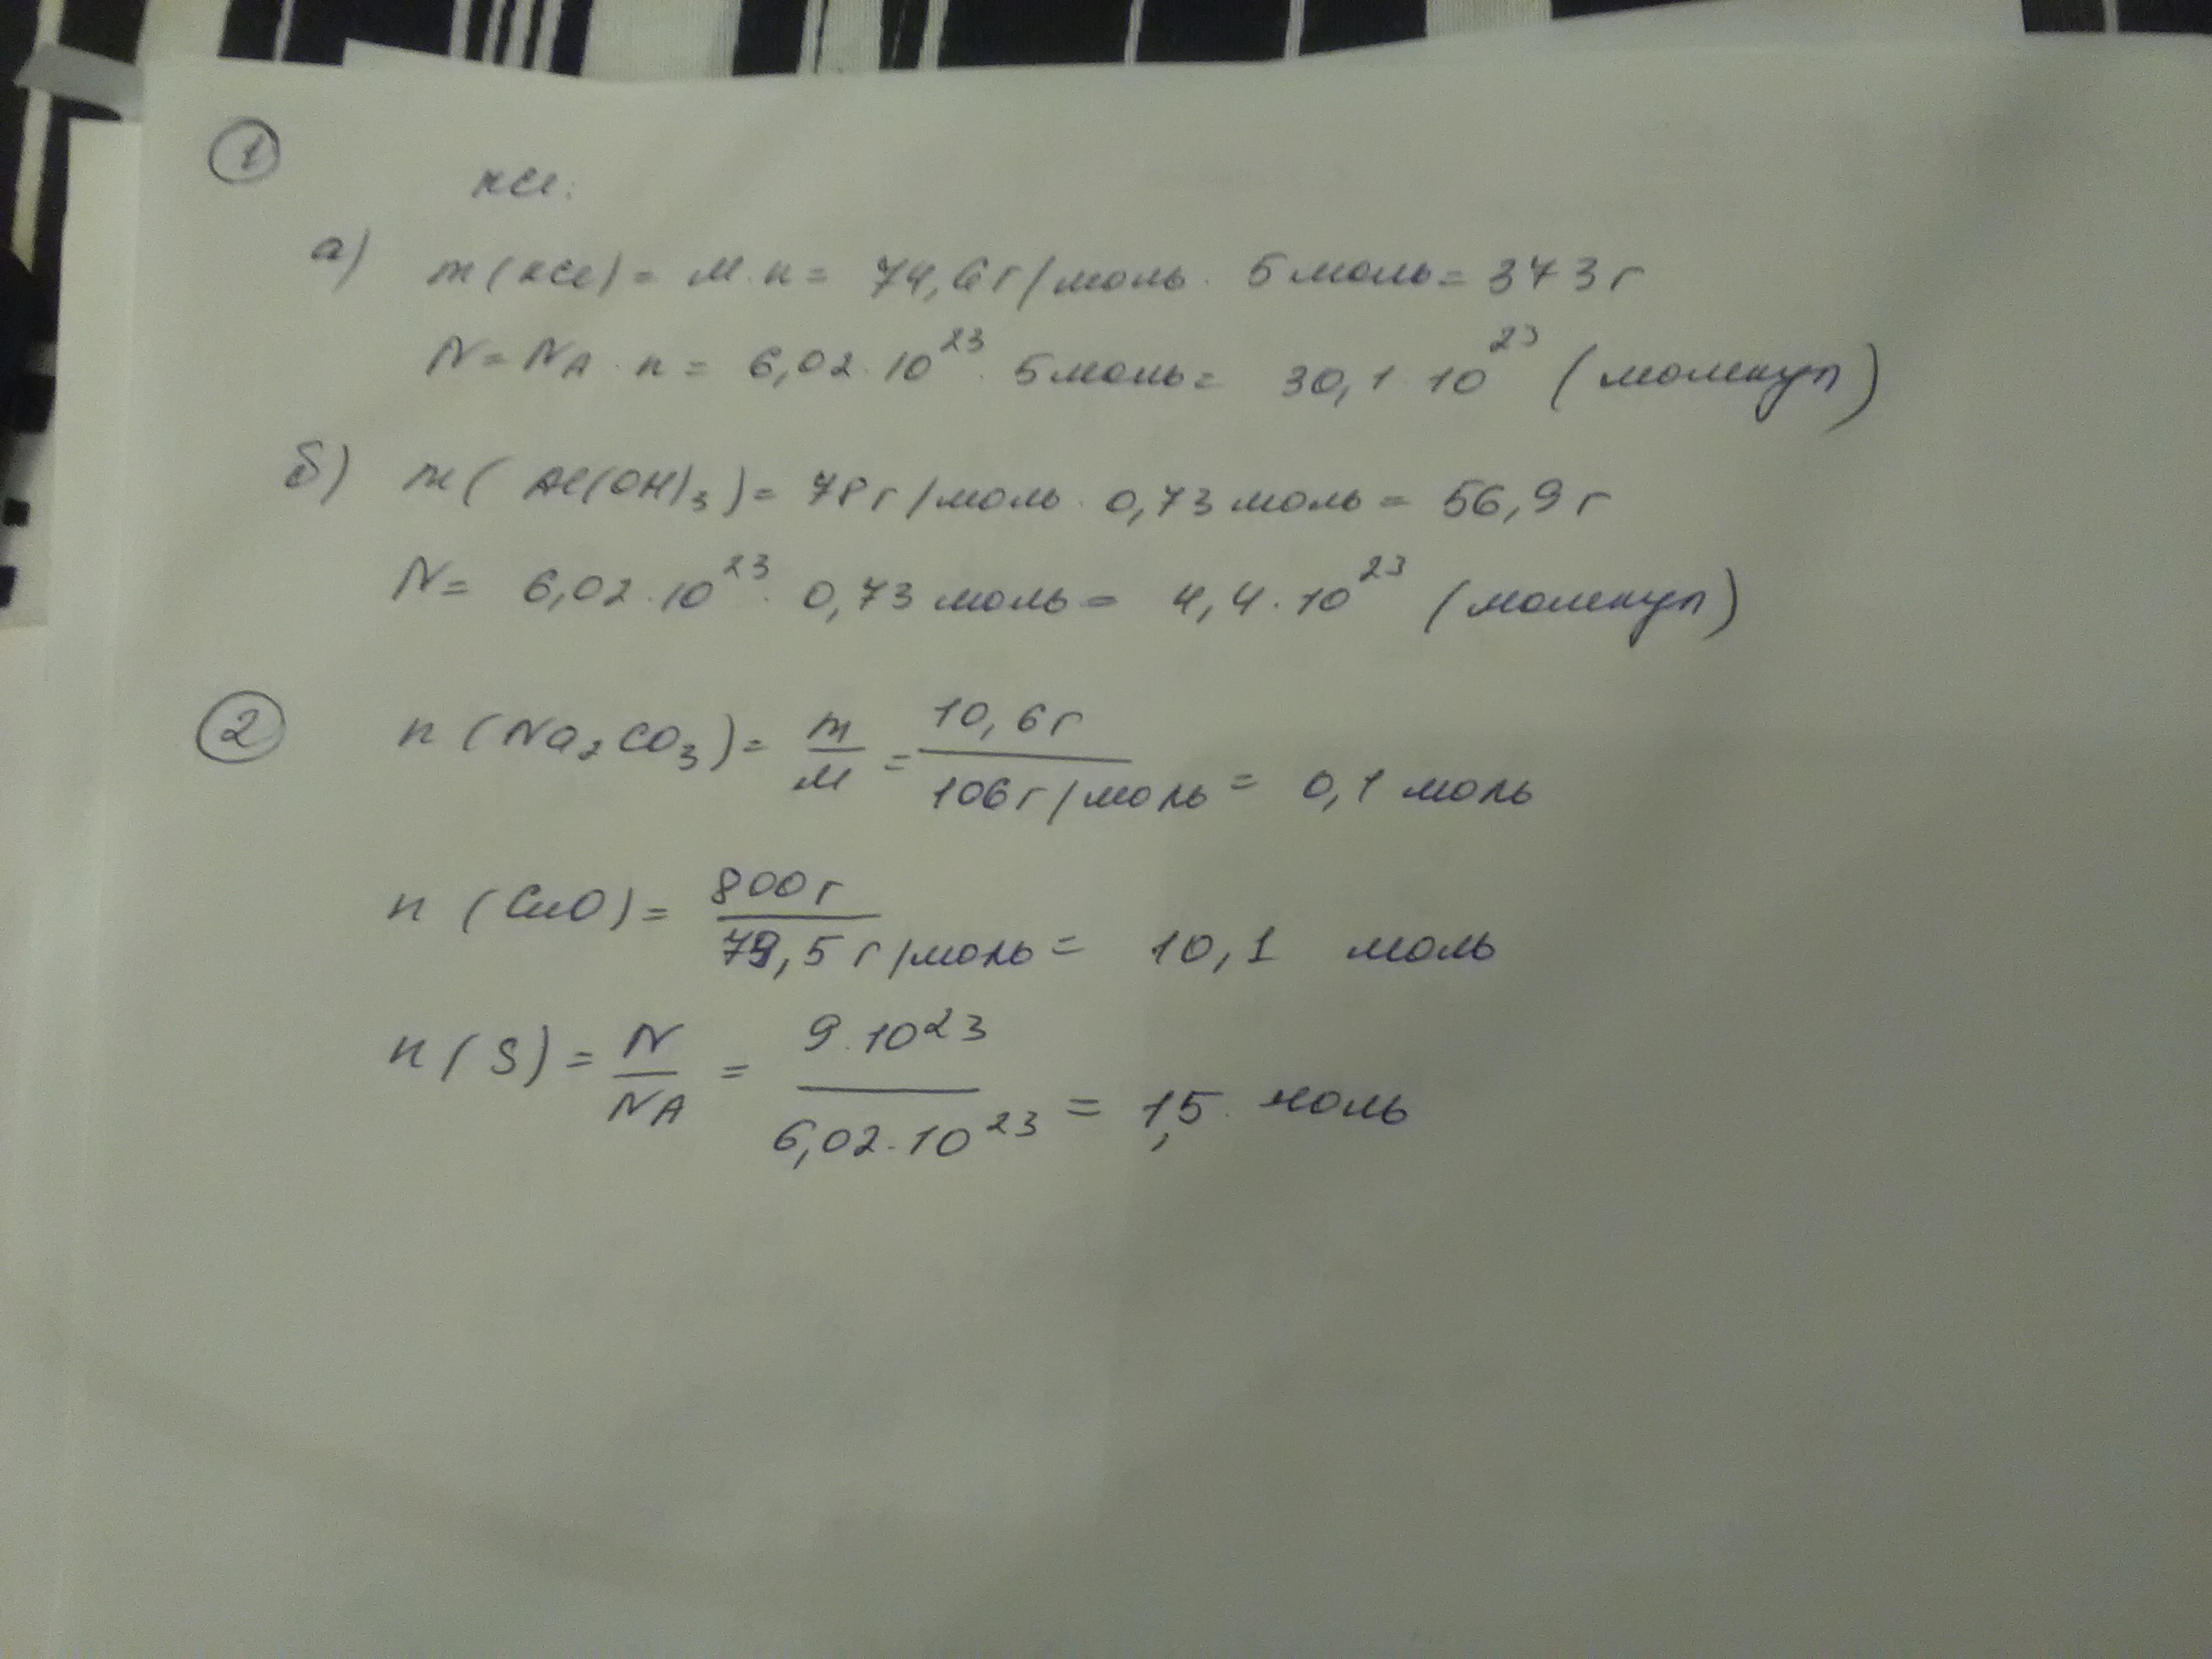 1
KCl:
а) m(KCl) = M·n = 74,6 г/моль · 5 моль = 373 г
N = NA · n = 6,02 · 10²³ · 5 моль = 30,1 · 10²³ (молекул)
б) m(Al(OH)₃) = 78 г/моль · 0,73 моль = 56,9 г
N = 6,02 · 10²³ · 0,73 моль = 4,4 · 10²³ (молекул)
2
n(Na₂CO₃) = m/M = 10,6 г / 106 г/моль = 0,1 моль
n(CuO) = 800 г / 79,5 г/моль = 10,1 моль
n(S) = N/NA = 9 · 10²³ / 6,02 · 10²³ = 1,5 моль